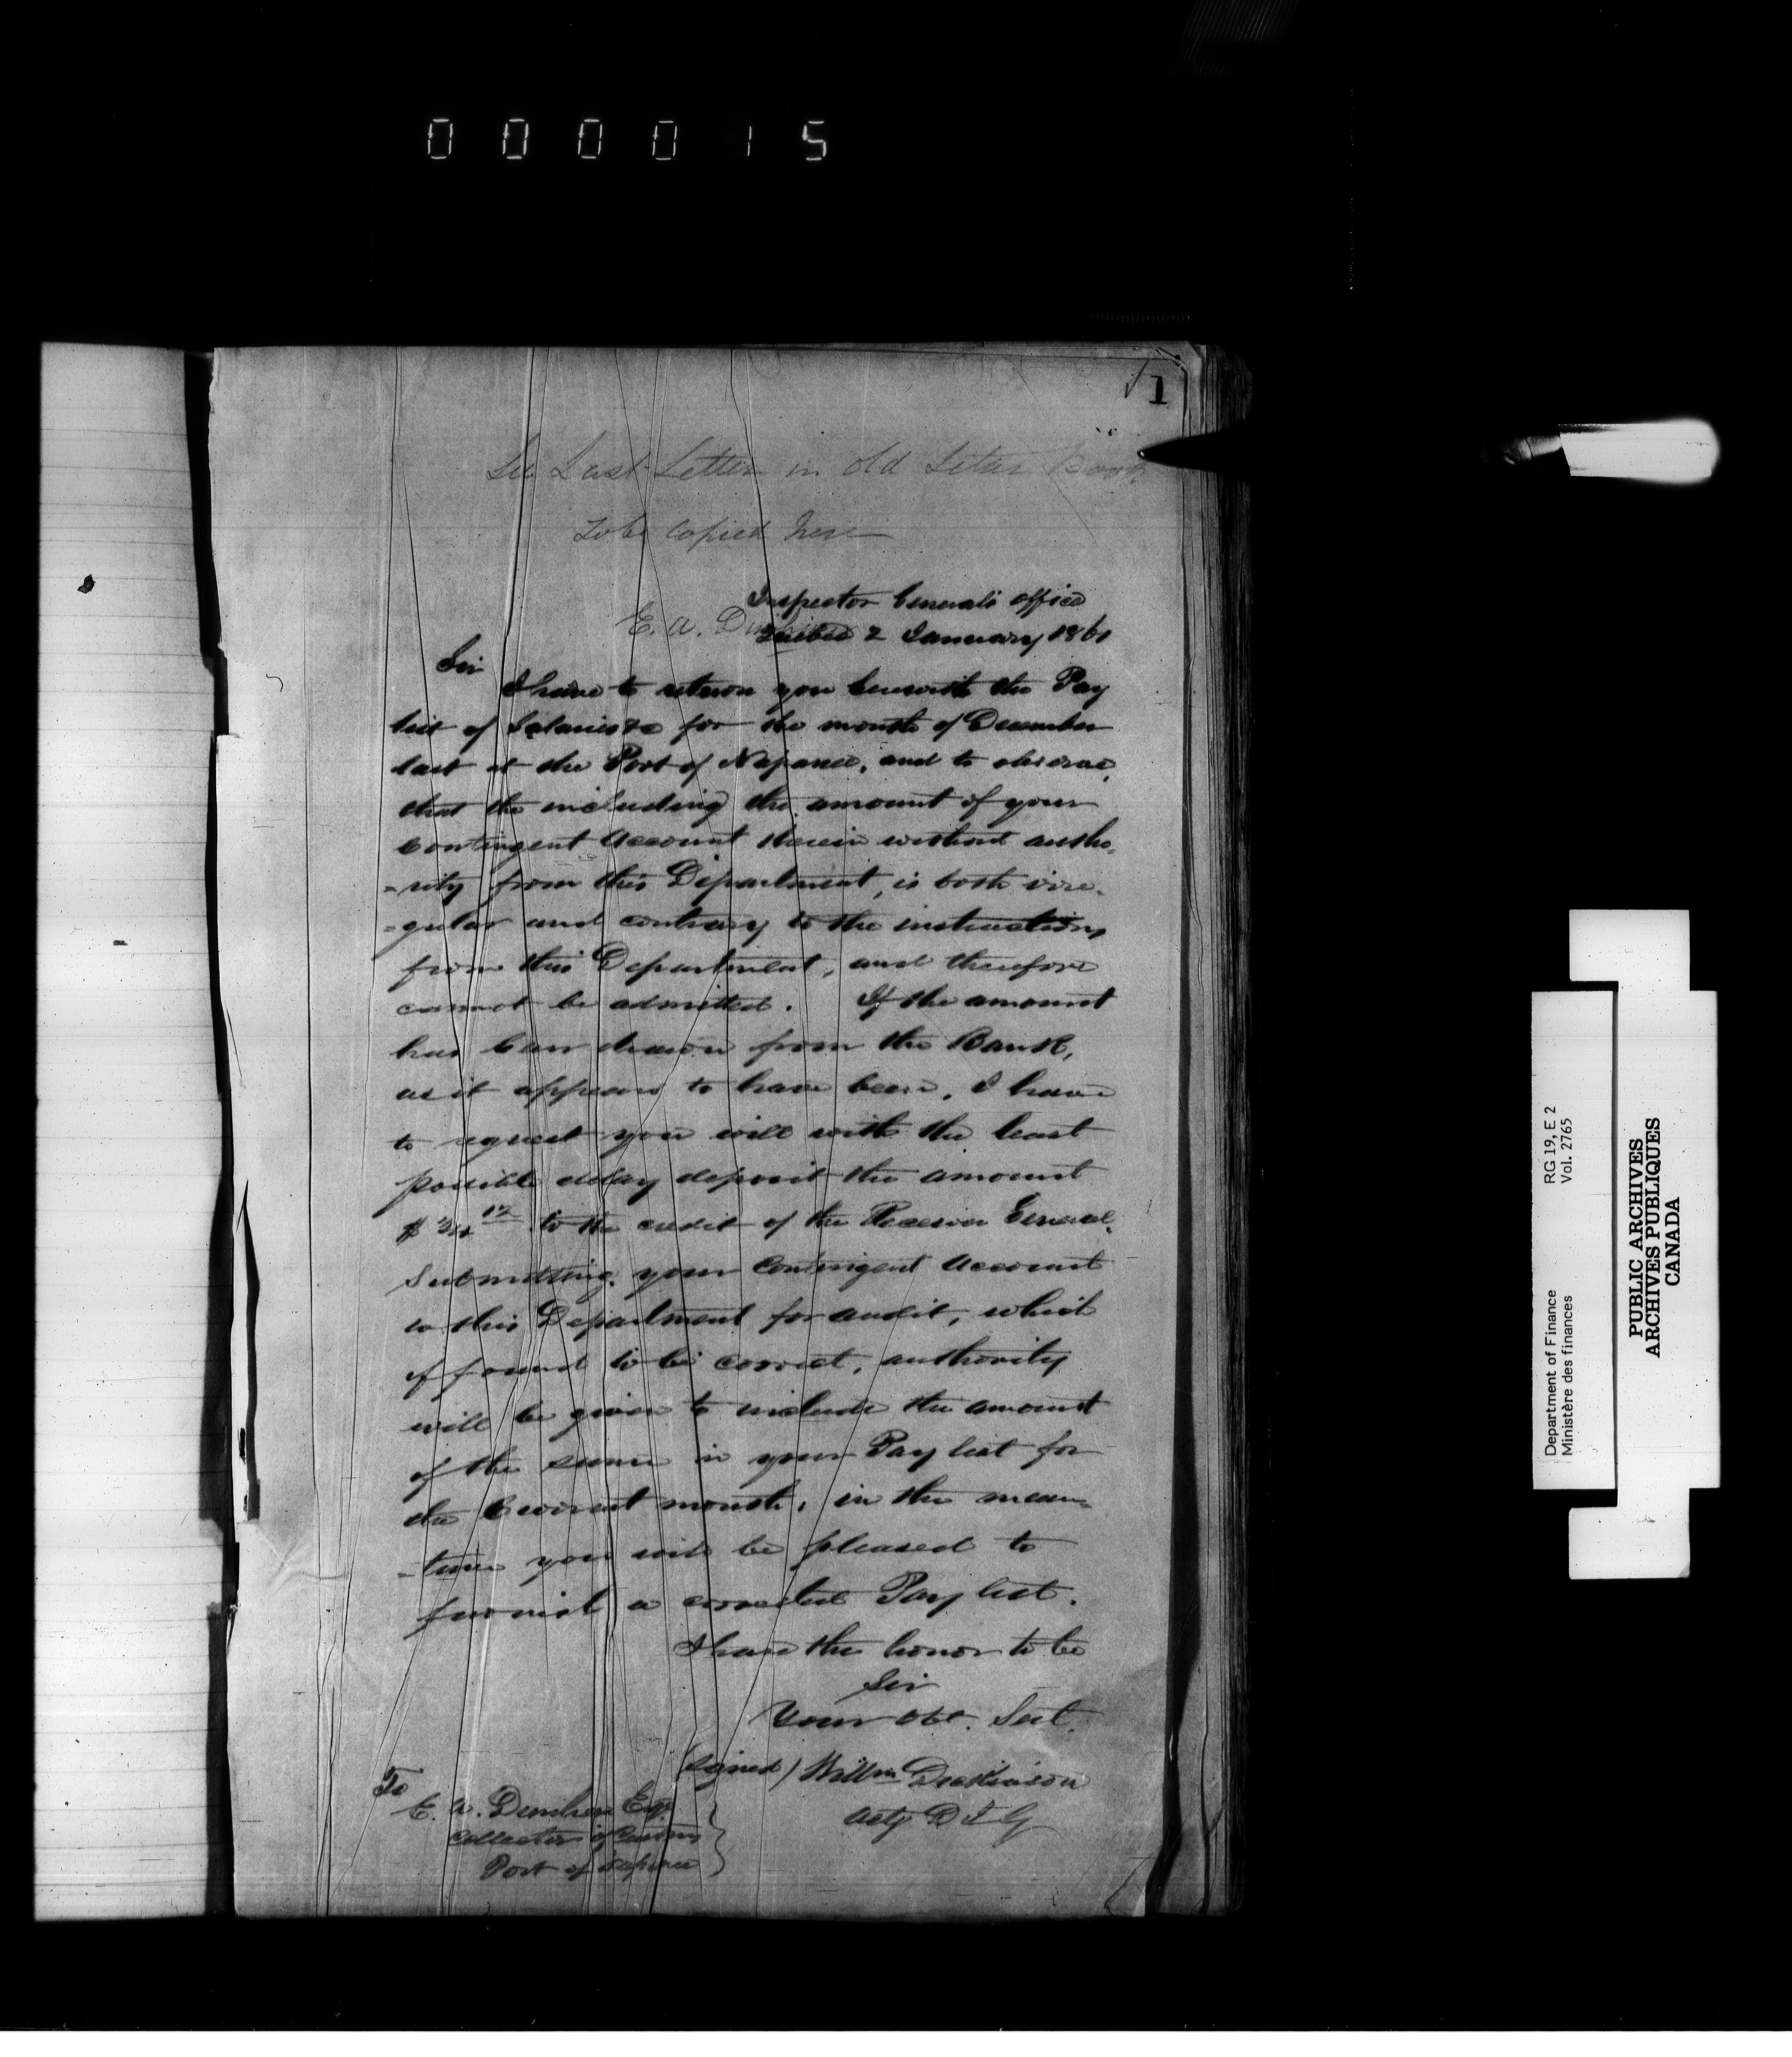 000015
1
See Last Letter in old Letter Book
to be copied here
Inspector General's office
E. A.
Quebec 2 January 1861
Sir
I have to return you herewith the Pay
list of Salaries &c for the month of December
last at the Port of Napanee, and to observe,
that the including the amount of your
Contingent Account therein without autho-
-rity from this Department, is both irre-
-gular and contrary to the instructions
from this Department, and therefore
cannot be admitted. If the amount
has been drawn from the Bank,
as it appears to have been, I have
to request you will with the least
possible delay deposit the amount
to the credit of the Receiver General,
submitting your Contingent Account
to this Department for audit, which
if found to be correct, authority
will be given to include the amount
of the same in your Pay list for
the Current month, in the mean-
-time you will be pleased to
furnish a corrected Pay list.
I have the honor to be
Sir
Your Obt. Sevt.
(signed) Willm Dickinson
Actg D I G
To
E. A. Esqr
Collector of Customs
Port of Napanee
Department of Finance RG 19, E 2
Ministère des finances Vol. 2765
PUBLIC ARCHIVES
ARCHIVES PUBLIQUES
CANADA